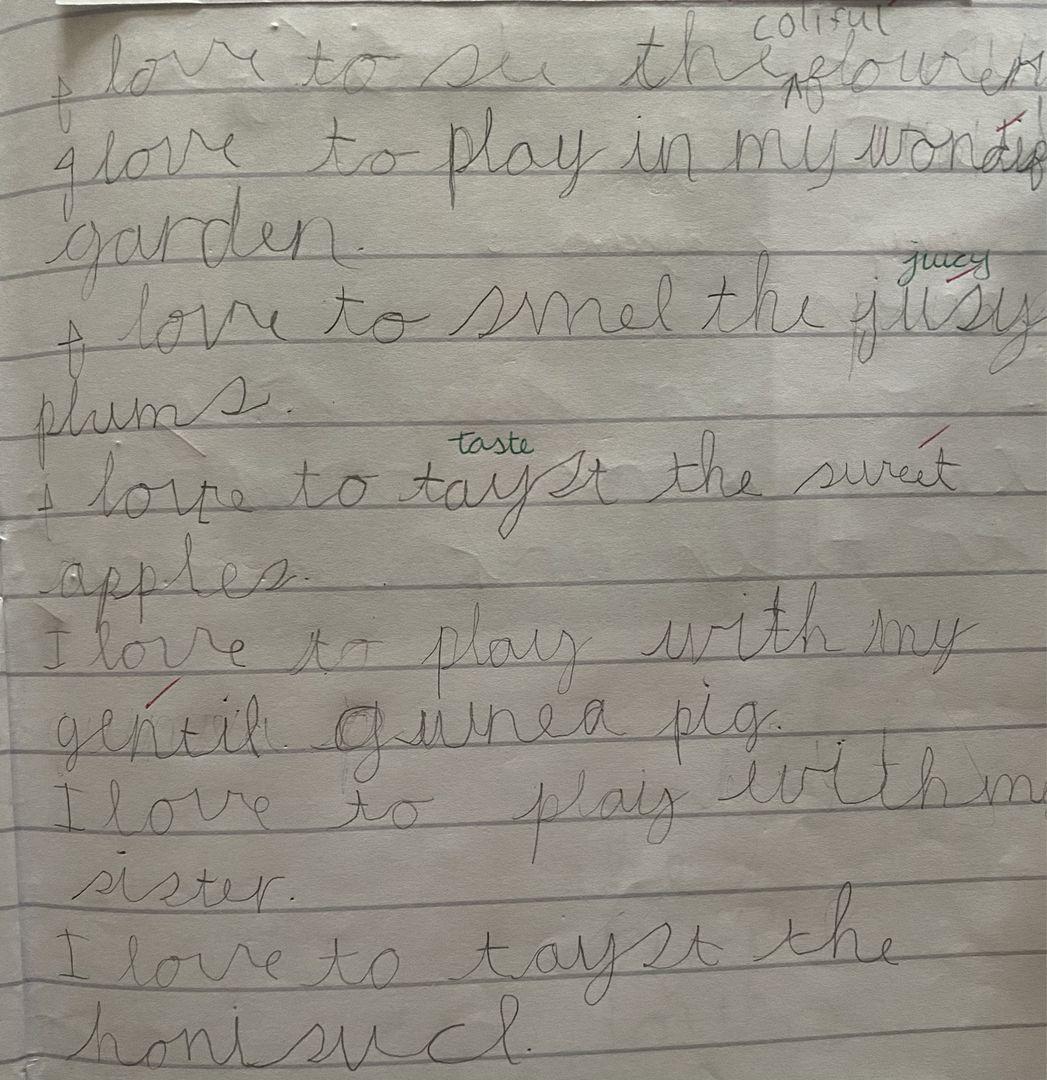 coliful
I love to see the flowers
I love to play in my
garden.
juicy
I love to smel the jusy
plums.
taste
I love to tayst the sweet
apples.
I love to play with my
gentil guinea pig.
I love to play with m
sister.
I love to tayst the
honi sucl.